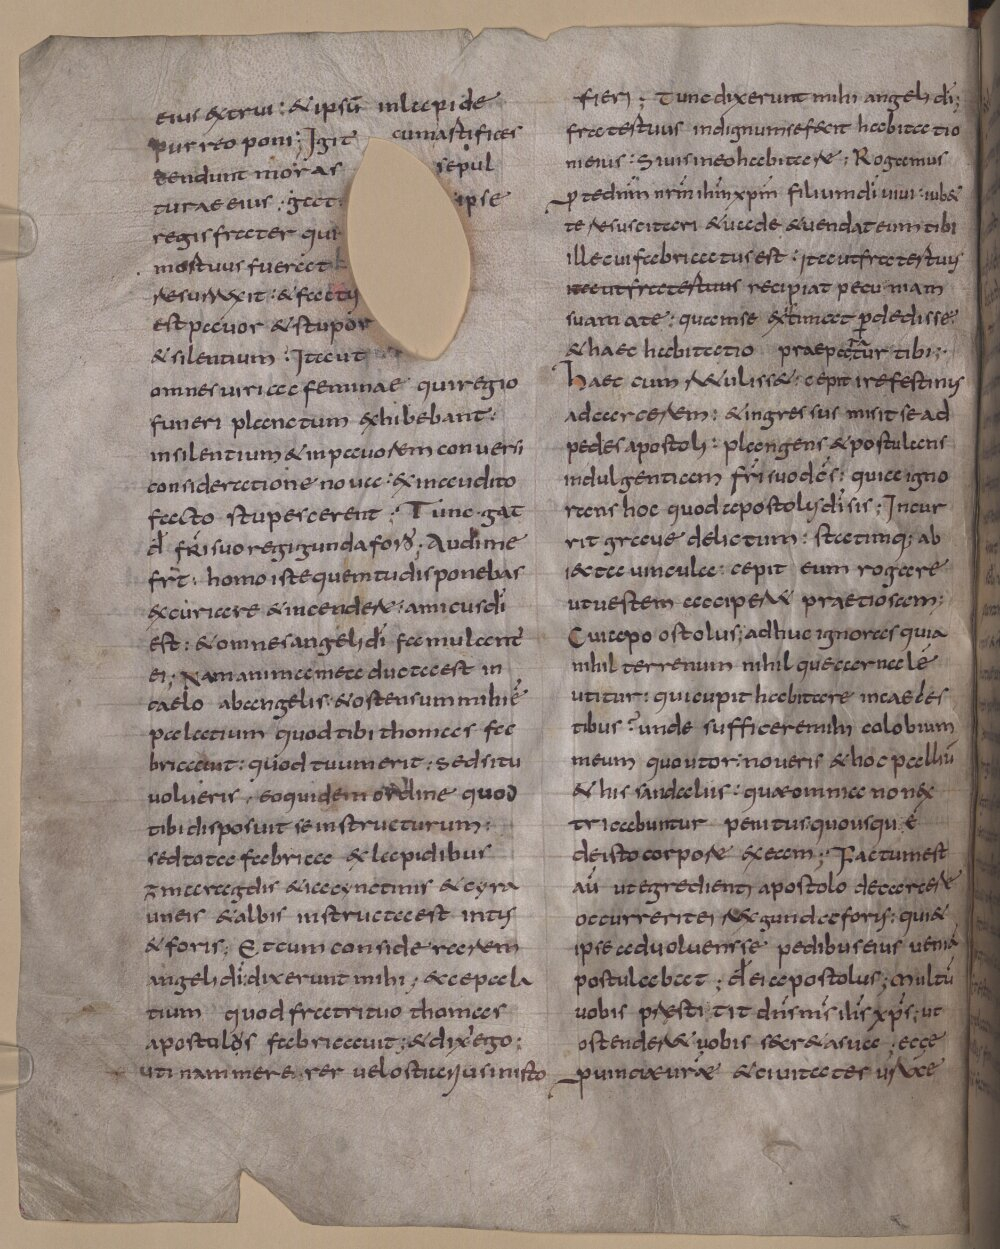 eius & trui: & ipsū in lapide
purreo poni; Igit cum artifices
tendunt moras sepul
turae eius. gat ipse
regis frater qui
mortuus fuerat
resurrexit: & factus
est pauor & stupor
& silentium: Ita ut
omnes uri ac feminae qui regio
funeri planctum exhibebant:
in silentium & in pauorem conuersi
consideratione noua: & inaudito
facto stupescerent; Tunc gat
d̄ fr̄i suo regi gundaforo; Audi me
fr̄t. homo iste quem tu disponebas
excuricare & incendere: amicus dī
est: & omnes angeli dī famulant̄
ei; Nam anima mea ducta est in
caelo ab angelis. & ostensum mihi ē
palatium quod tibi thomas fa
bricauit: quod tuum erit. sed si tu
uolueris. eo quidem ordine quod
tibi disposuit se instructurum:
sed tota fabrica & lapidibus
zmaragdis & iacynctinis & cyra
uneis & albis instructa est intus
& foris; Et cum considerarem
angeli dī dixerunt mihi; ecce pala
tium quod fratri tuo thomas
apostulus fabricauit; & dix̄ ego;
utinam mererer uel ostiarius in isto
fieri; Tunc dixerunt mihi angeli dī;
frater tuus indignum se fecit habitatio
nieius: Si uis in eo habitare; Rogamus
p te dnm̄ nrm̄ ihm̄ xpm̄ filium dī uiui. iub&
te resuscitari & uade & uendat eum tibi
ille cui fabricatus est: ita ut frater tuus
ita ut frater tuus recipiat pecuniam
suam a te: quam se extimat pdedisse:
& haec habitatio praepaatur tibi;
haec cum reuulisset: cepit ire festinus
ad carcerem: & ingressus misit se ad
pedes apostoli: plangens & postulans
indulgentiam fr̄i suo dc̄s: quia igno
rans hoc quod apostolus dī sis; Incur
rit graue delictum: statimq; ab
iecta uincula: cepit eum rogare
ut uestem acciperet praetiosam:
Cui apo ostolus; adhuc ignoras quia
nihil terrenum nihil que carnale
utitur: qui cupit habitare in caeles
tibus? unde sufficere mihi colobium
meum quo utor: noueris & hoc palliū
& his sandaliis: quae omnia non ex
tricabuntur penitus: quousque
de isto corpore exeam; Factum est
aū ut egredienti apostolo de carcere
occurrerit ei rex gundaforis: qui &
ipse aduoluens se pedibus eius uenia
postulabat; d̄ ei apostolus; multū
uobis prestitit dn̄s ms̄ ih̄s xp̄s: ut
ostenderet uobis secreta sua; ecce
puincia urae & ciuitates urae